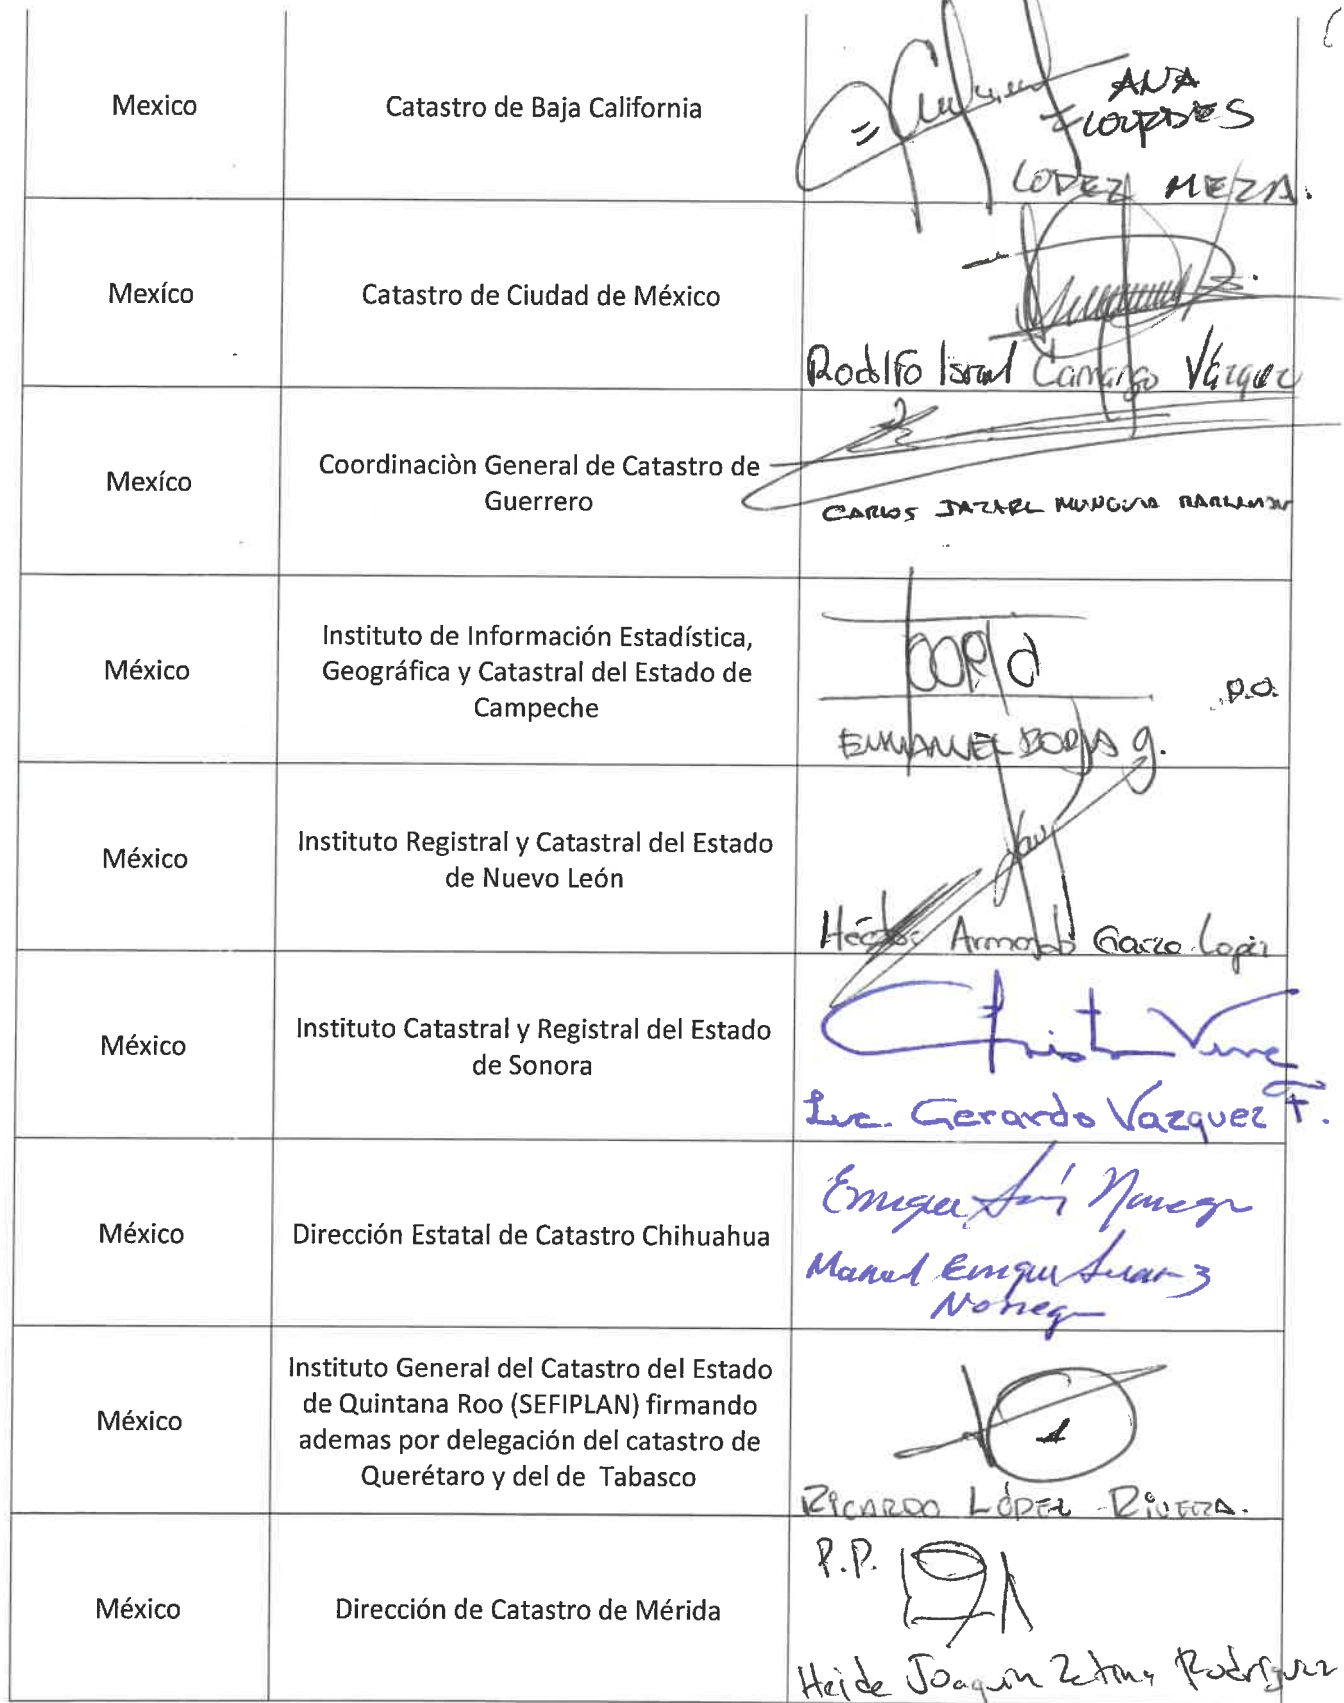 Mexico
Catastro de Baja California
ANA
LOURDES
LOPEZ MEZA.
Mexíco
Catastro de Ciudad de México
Rodolfo Israel Camargo Vázquez
Mexíco
Coordinaciòn General de Catastro de
Guerrero
CARLOS JAZAEL MUNGUIA
México
Instituto de Información Estadística,
Geográfica y Catastral del Estado de
Campeche
p.o.
EMMANUEL BORJA G.
México
Instituto Registral y Catastral del Estado
de Nuevo León
Héctor Armando Garza Lopez
México
Instituto Catastral y Registral del Estado
de Sonora
Lic. Gerardo Vazquez F.
México
Dirección Estatal de Catastro Chihuahua
Manuel Enrique Suarez
Noriega
México
Instituto General del Catastro del Estado
de Quintana Roo (SEFIPLAN) firmando
ademas por delegación del catastro de
Querétaro y del de Tabasco
RICARDO LÓPEZ RIVERA.
México
Dirección de Catastro de Mérida
P.P.
Heide Joaquin Zetina Rodríguez